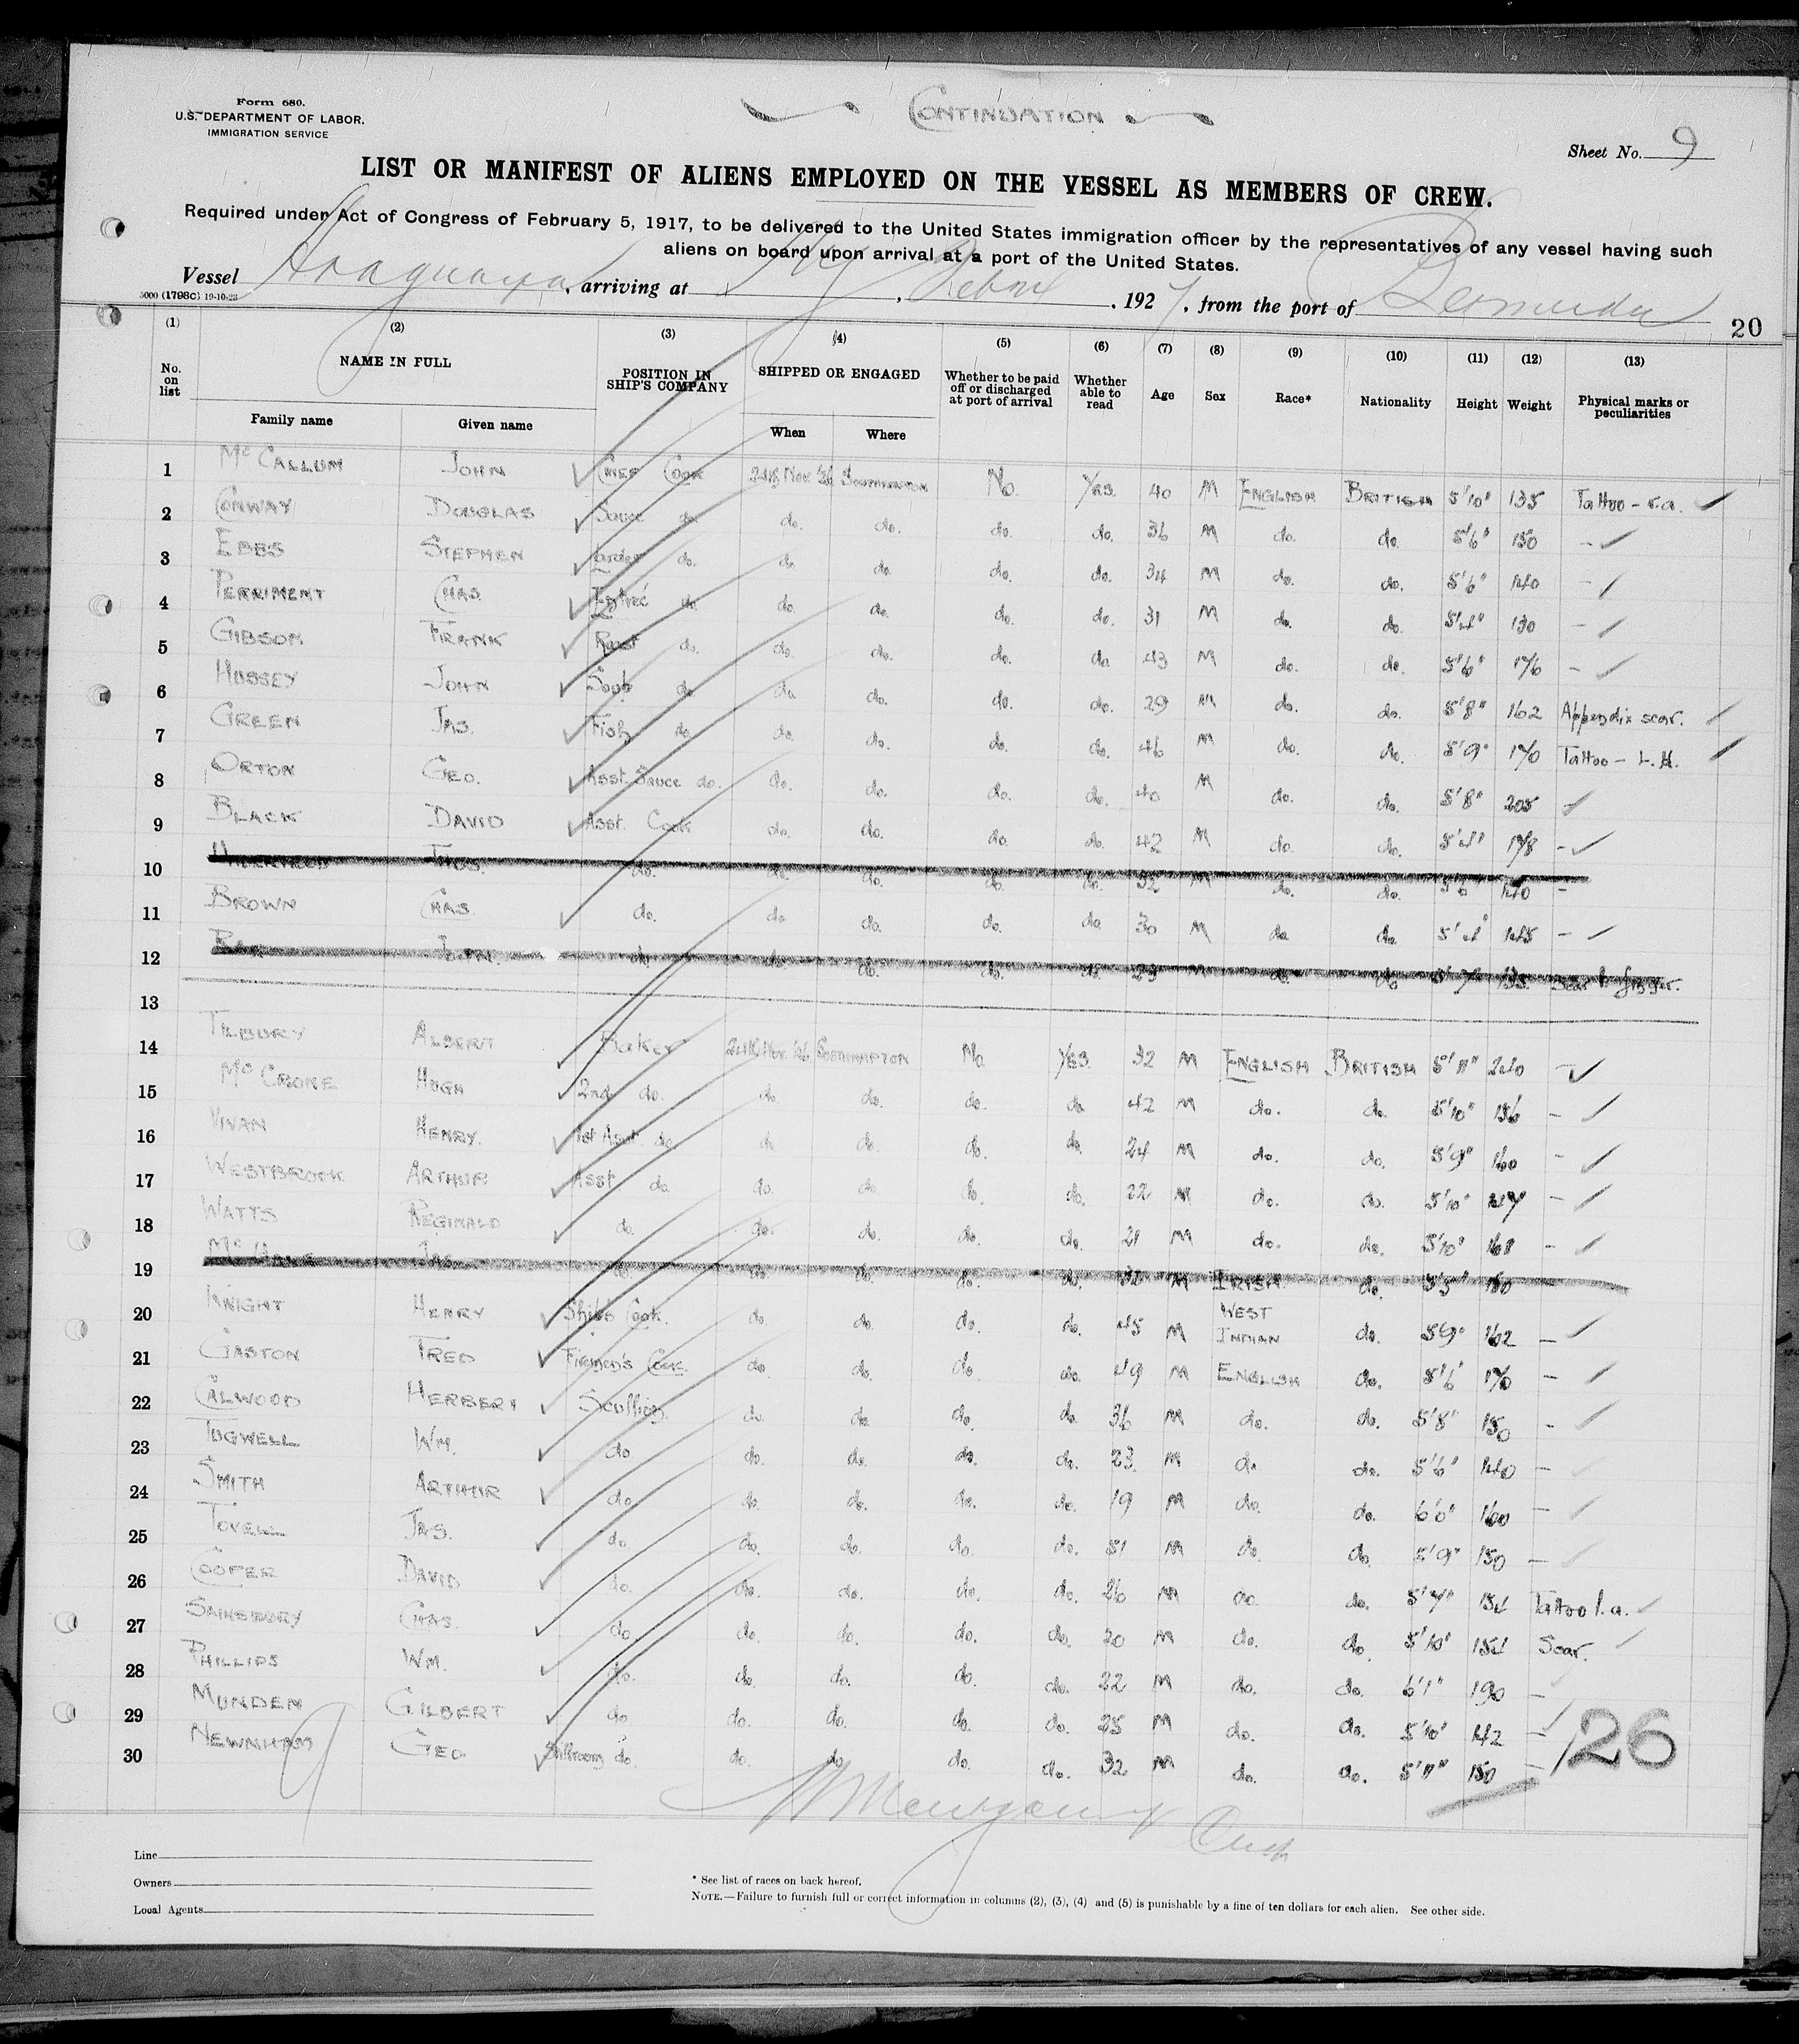 CONTINUATION
Form 680.
U.S. DEPARTMENT OF LABOR.
IMMIGRATION SERVICE
Sheet No. 9
LIST OR MANIFEST OF ALIENS EMPLOYED ON THE VESSEL AS MEMBERS OF CREW.
Required under Act of Congress of February 5, 1917, to be delivered to the United States immigration officer by the representatives of any vessel having such
aliens on board upon arrival at a port of the United States.
Vessel Araguaya, arriving at N.Y., , 1927, from the port of Bermuda
5000 (1798C) 19-10-23
20
(1) (2) (3) (4) (5) (6) (7) (8) (9) (10) (11) (12) (13)
No. on list NAME IN FULL POSITION IN SHIP'S COMPANY SHIPPED OR ENGAGED Whether to be paid off or discharged at port of arrival Whether able to read Age Sex Race* Nationality Height Weight Physical marks or peculiarities
Family name Given name When Where
1 McCALLUM JOHN CHIEF COOK 24th Nov '26 SOUTHAMPTON No. YES. 40 M ENGLISH BRITISH 5'10" 135 Tattoo - r.a.
2 CONWAY DOUGLAS Sauce do. do. do. do. do. 36 M do. do. 5'6" 150 -
3 EBBS STEPHEN Larder do. do. do. do. do. 34 M do. do. 5'6" 140 -
4 PERRIMENT CHAS. Entrée do. do. do. do. do. 31 M do. do. 5'4" 130 -
5 GIBSON FRANK Roast do. do. do. do. do. 43 M do. do. 5'6" 176 -
6 HUSSEY JOHN Soup do. do. do. do. do. 29 M do. do. 5'8" 162 Appendix scar.
7 GREEN JAS. Fish do. do. do. do. do. 46 M do. do. 5'9" 170 Tattoo - L.H.
8 ORTON GEO. Asst. Sauce do. do. do. do. do. 40 M do. do. 5'8" 205 -
9 BLACK DAVID Asst. Cook do. do. do. do. 42 M do. do. 5'4" 178 -
10 THOS. do. do. do. do. do. 32 M do. do. 5'6" 140 -
11 BROWN CHAS. do. do. do. do. do. 30 M do. do. 5'4" 145 -
12 do. do. do. do. do. 23 M do. do. 5'7" 135 Scar finger.
13
14 TILBURY ALBERT Baker 24th Nov. '26 SOUTHAMPTON No YES. 32 M ENGLISH BRITISH 5'11" 240 -
15 McCRONE HUGH 2nd do. do. do. do. do 42 M do. do. 5'10" 156 -
16 VIVAN HENRY. 1st Asst. do. do. do. do. do. 24 M do. do. 5'9" 160 -
17 WESTBROOK ARTHUR Asst do. do. do. do. do. 22 M do. do. 5'10" 147 -
18 WATTS REGINALD do. do. do. do. do. 21 M do. do. 5'10" 168 -
19 JAS. do. do. do. do. do. 32 M IRISH. do. 5'5" 150
20 KNIGHT HENRY Ship's Cook. do. do. do. do. 45 M WEST INDIAN do. 5'9" 162 -
21 GASTON FRED Firemen's Cook. do. do. do. do. 49 M ENGLISH do. 5'6" 170 -
22 CALWOOD HERBERT Scullion. do. do. do. do. 36 M do. do. 5'8" 150 -
23 TUGWELL WM. do do. do. do. do. 23 M do. do. 5'6" 140 -
24 SMITH ARTHUR do do. do. do. do. 19 M do. do. 6'0" 160 -
25 TOVELL JAS. do. do. do. do. do. 51 M do. do. 5'9" 150 -
26 COOPER DAVID do. do. do. do. do. 26 M do. do. 5'7" 154 Tattoo l.a.
27 SAINSBURY CHAS. do do. do. do. do. 20 M do. do. 5'10" 154 Scar.
28 PHILLIPS WM. do. do. do. do. do. 22 M do. do. 6'1" 190 -
29 MUNDEN GILBERT do do. do. do. do. 25 M do. do. 5'10" 142 -
30 NEWNHAM GEO Stillroom do. do. do. do. do. 32 M do. do. 5'11" 150 -
26
Line
Owners
Local Agents
* See list of races on back hereof.
NOTE.—Failure to furnish full or correct information in columns (2), (3), (4) and (5) is punishable by a fine of ten dollars for each alien. See other side.